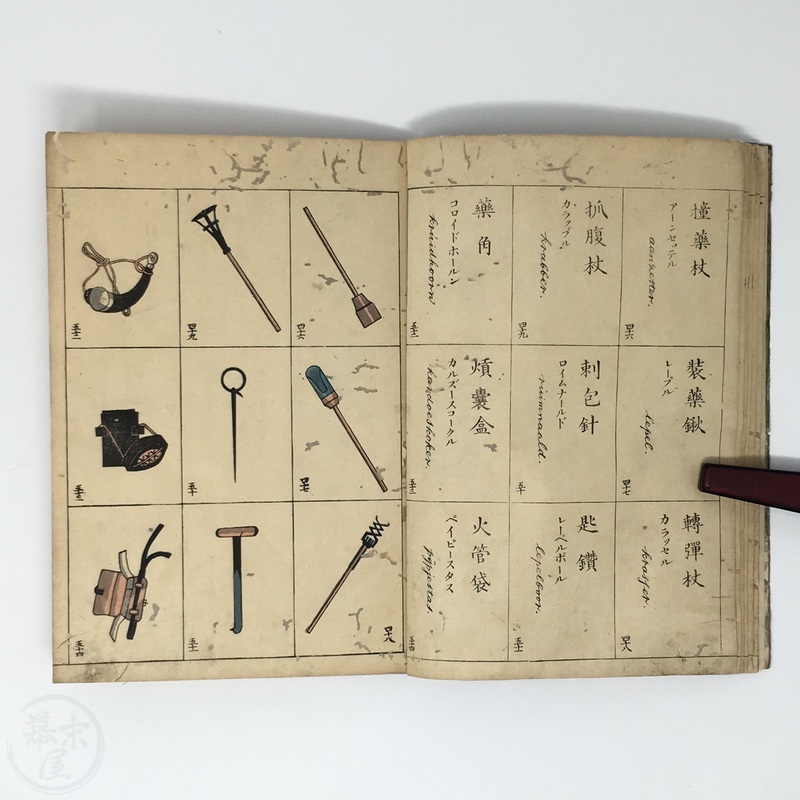 撞藥杖
アーンセッテル
aanzetter.
四十六
裝藥鍬
レープル
lepel.
四十七
轉彈杖
カラッセル
krasser.
四十八
抓腹杖
カラッブル
krabber.
四十九
刺包針
ロイムナールド
ruimnaald.
五十
匙鑽
レーペルボール
lepelboor.
五十一
藥角
コロイドホールン
kruidhoorn
五十二
熕囊盒
カルズースコークル
kardoeskoker.
五十三
火管袋
ペイピースタス
pypjestas.
五十四
四十六
四十七
四十八
四十九
五十
五十一
五十二
五十三
五十四
幕末屋